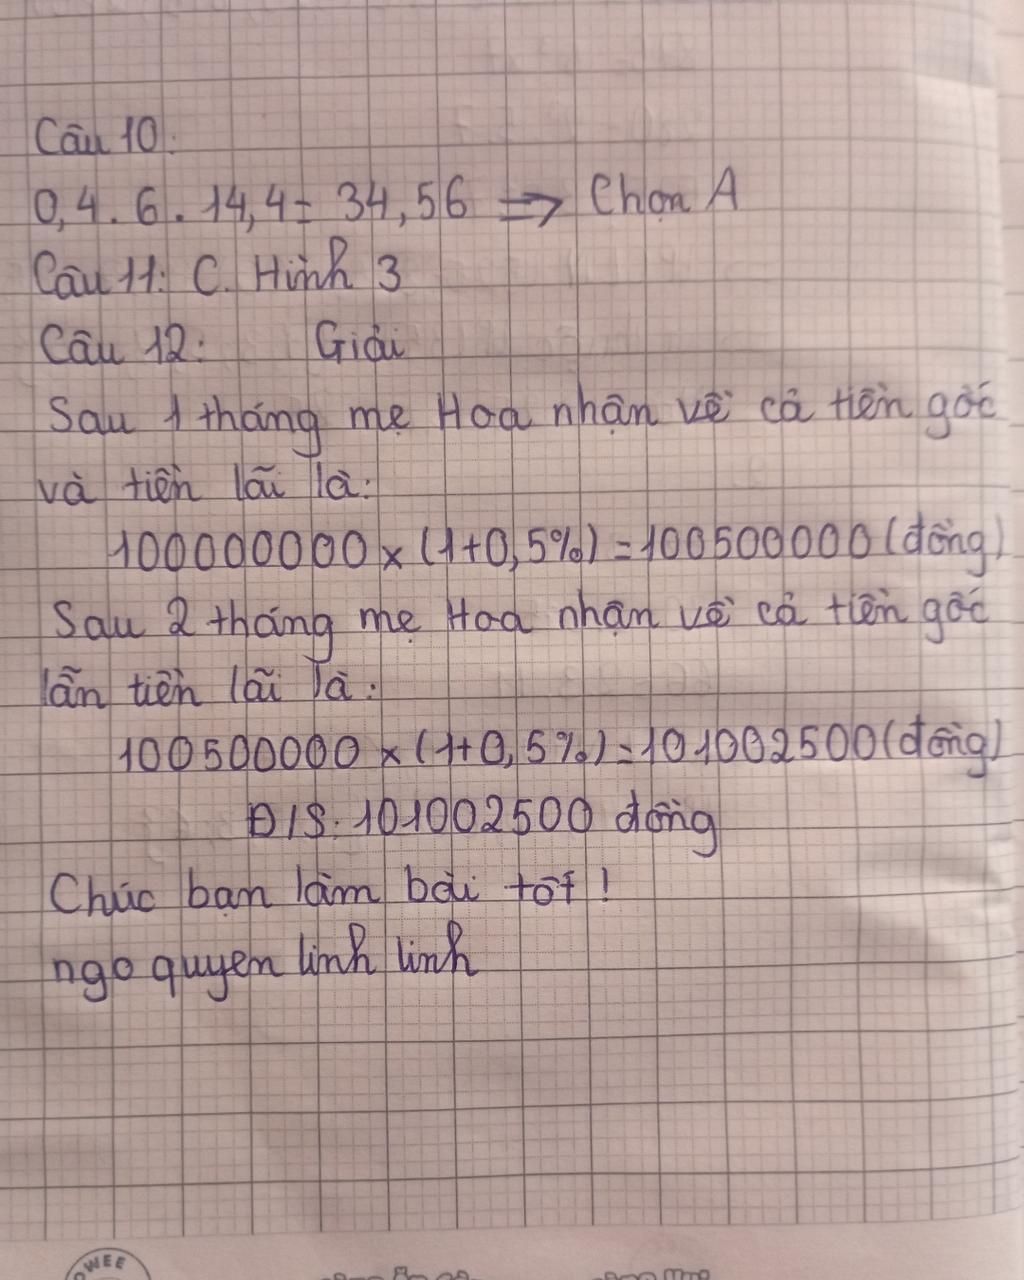 Câu 10:
0,4 . 6 . 14,4 = 34,56 => Chọn A
Câu 11: C. Hình 3
Câu 12: Giải
Sau 1 tháng mẹ Hoa nhận về cả tiền gốc
và tiền lãi là:
100000000 × (1+0,5%) = 100500000 (đồng)
Sau 2 tháng mẹ Hoa nhận về cả tiền gốc
lẫn tiền lãi là:
100500000 × (1+0,5%) = 101002500 (đồng)
Đ/S: 101002500 đồng
Chúc bạn làm bài tốt !
ngo quyen linh linh
WEE